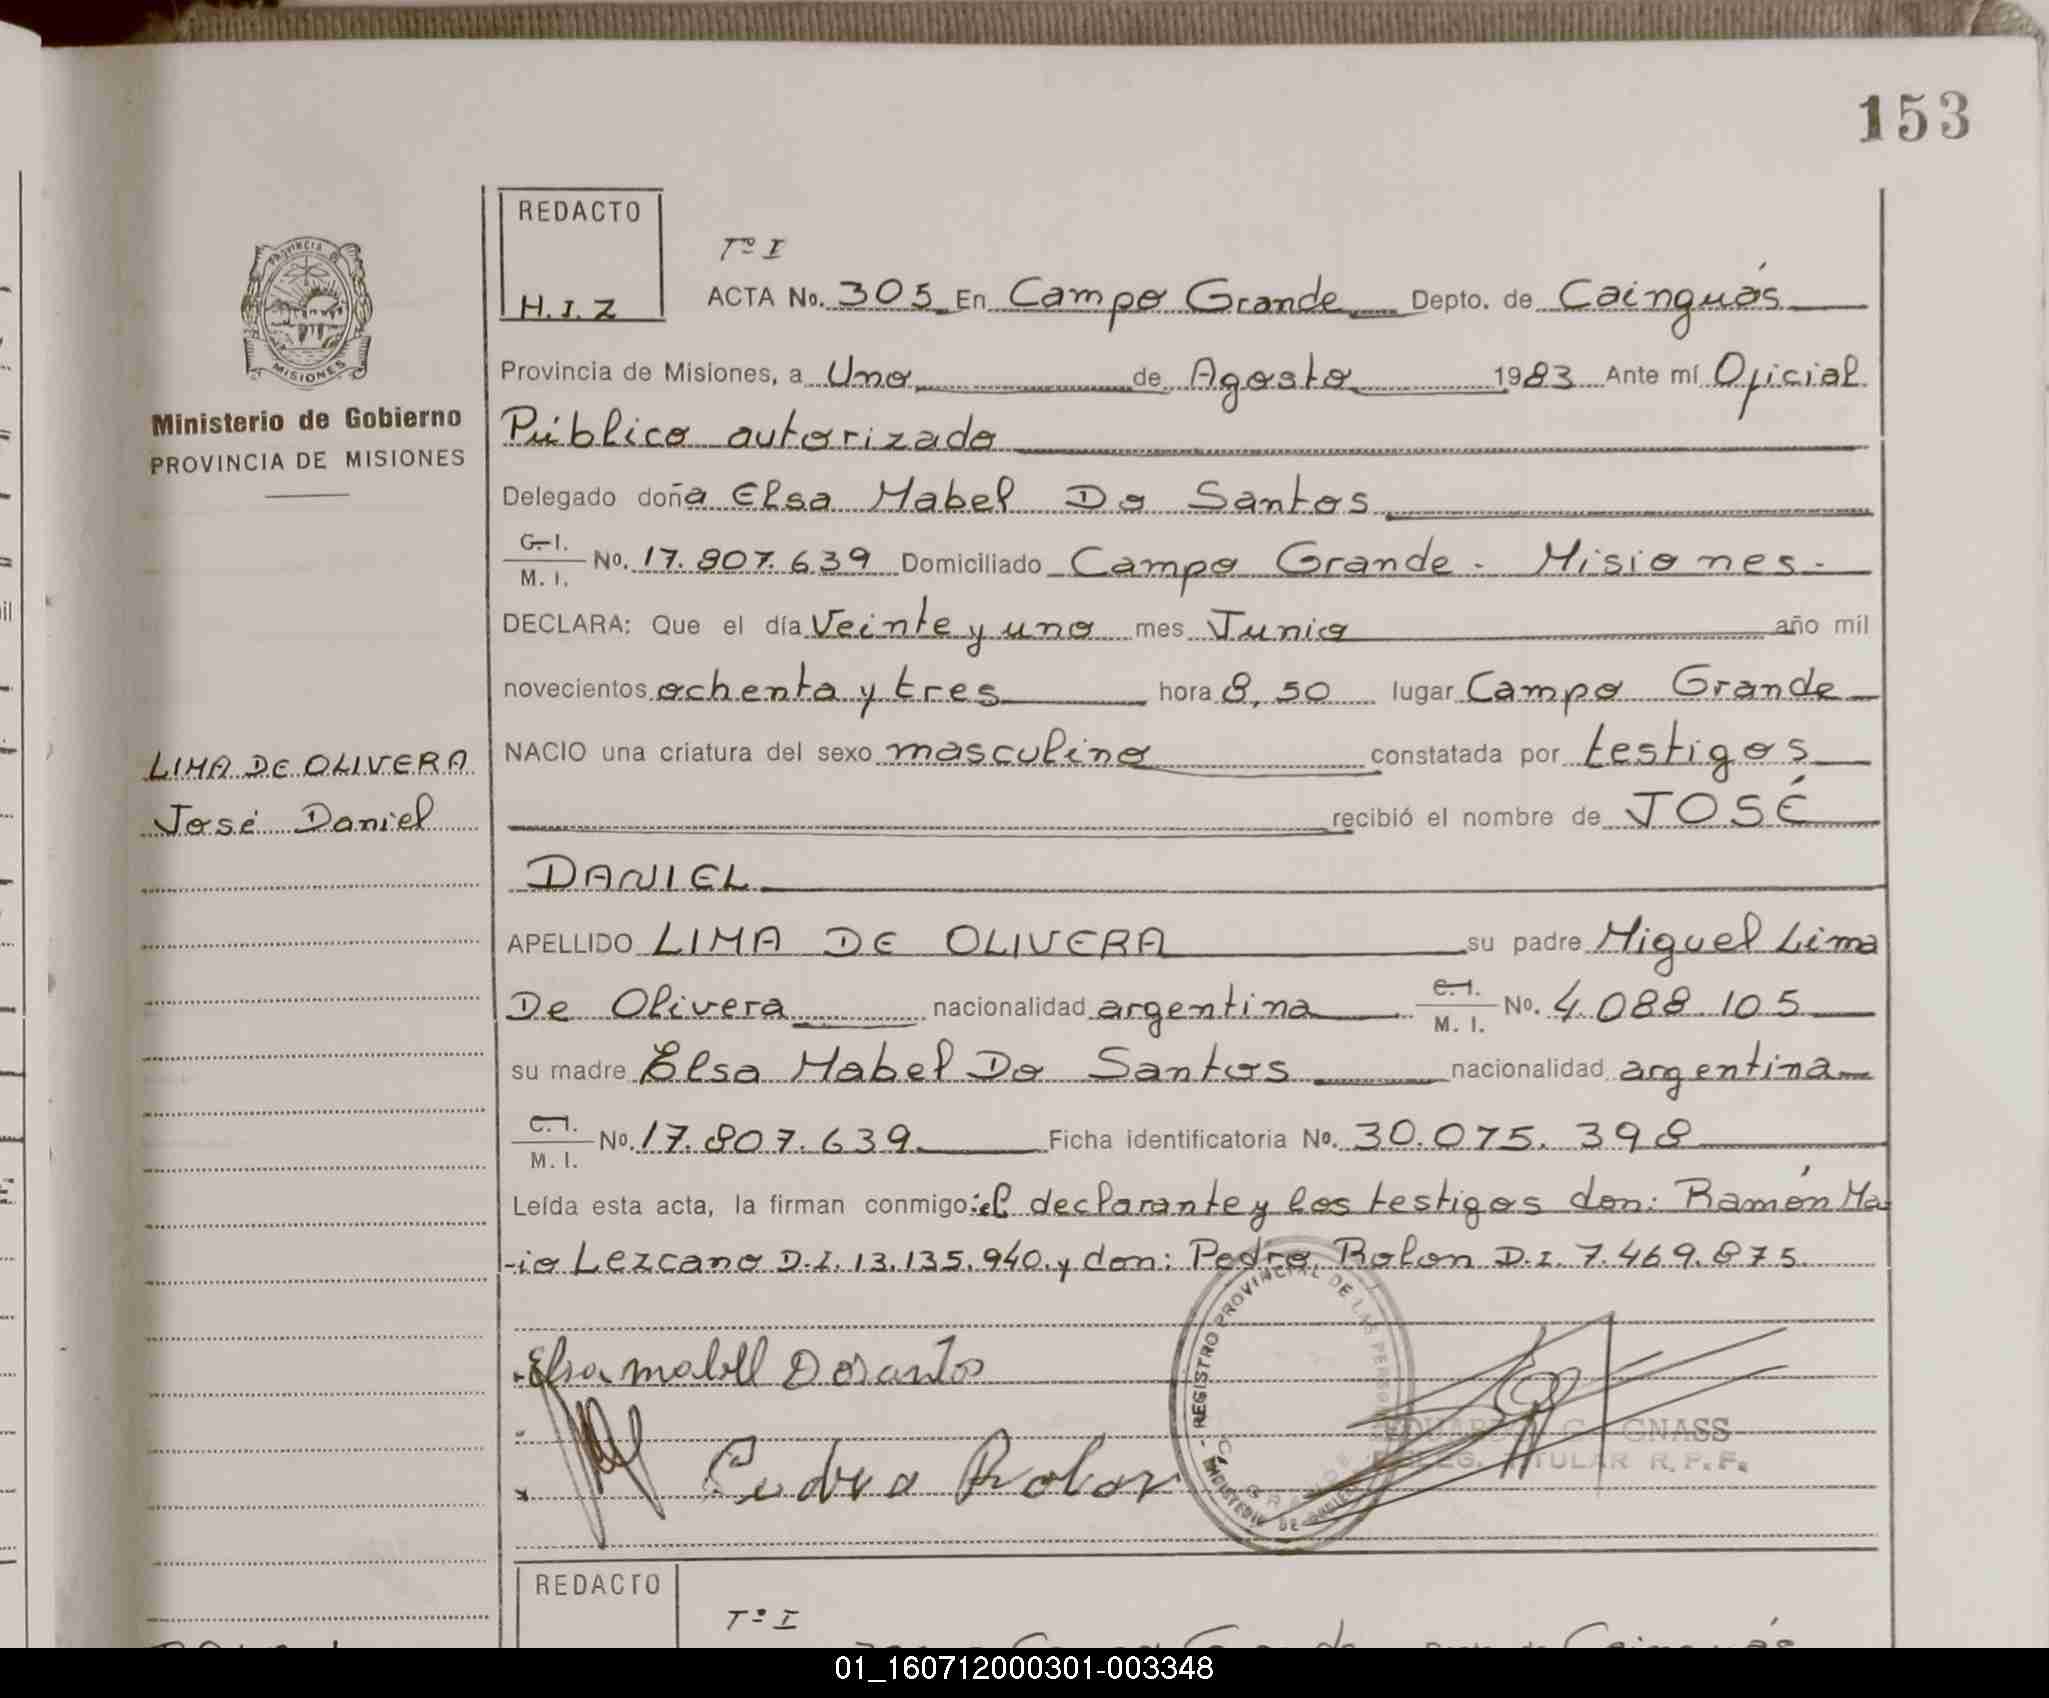 153
REDACTO
H.I.Z
Tº I
ACTA No. 305 En Campo Grande Depto. de Cainguás
PROVINCIA DE
MISIONES
Ministerio de Gobierno
PROVINCIA DE MISIONES
Provincia de Misiones, a Uno de Agosto 1983 Ante mí Oficial
Público autorizado
Delegado doña Elsa Mabel Do Santos
C.I. M.I. No. 17.807.639 Domiciliado Campo Grande - Misiones.-
DECLARA: Que el día Veinte y uno mes Junio año mil
novecientos ochenta y tres hora 8,50 lugar Campo Grande
NACIO una criatura del sexo masculino constatada por testigos
recibió el nombre de JOSÉ
DANIEL
LIMA DE OLIVERA
José Daniel
APELLIDO LIMA DE OLIVERA su padre Miguel Lima
De Olivera nacionalidad argentina C.I. M.I. No. 4.088.105
su madre Elsa Mabel Do Santos nacionalidad argentina
C.I. M.I. No. 17.807.639 Ficha identificatoria No. 30.075.398
Leída esta acta, la firman conmigo: el declarante y los testigos don: Ramón Ma-
-io Lezcano D.I. 13.135.940. y don: Pedro Rolon D.I. 7.469.875.
Elsa mabell Dosanto
Pedro Rolon
REGISTRO PROVINCIAL DE LAS PERSO
C. GRANDE
MINISTERIO DE GOBIERNO
EDUARDO G. GNASS
DELEG. TITULAR R.P.F.
REDACTO
Tº I
01_160712000301-003348